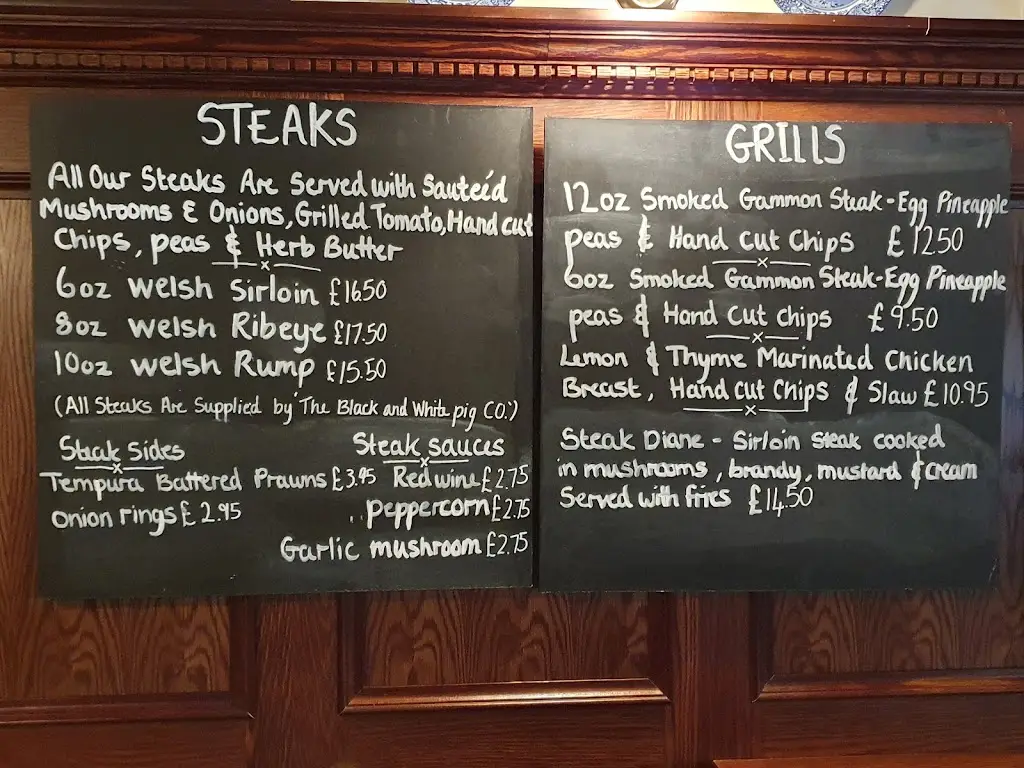 STEAKS
All Our Steaks Are Served with Sauteéd
Mushrooms & Onions, Grilled Tomato, Hand cut
Chips, peas & Herb Butter
6oz welsh Sirloin £16.50
8oz welsh Ribeye £17.50
10oz welsh Rump £15.50
(All Steaks Are Supplied by 'The Black and White pig CO.')
Steak Sides
Tempura Battered Prawns £3.95
Onion rings £2.95
Steak sauces
Red wine £2.75
Peppercorn £2.75
Garlic mushroom £2.75
GRILLS
12oz Smoked Gammon Steak - Egg Pineapple
peas & Hand Cut Chips £12.50
6oz Smoked Gammon Steak - Egg Pineapple
peas & Hand Cut Chips £9.50
Lemon & Thyme Marinated Chicken
Breast, Hand Cut Chips & Slaw £10.95
Steak Diane - Sirloin steak cooked
in mushrooms, brandy, mustard & cream
Served with fries £14.50